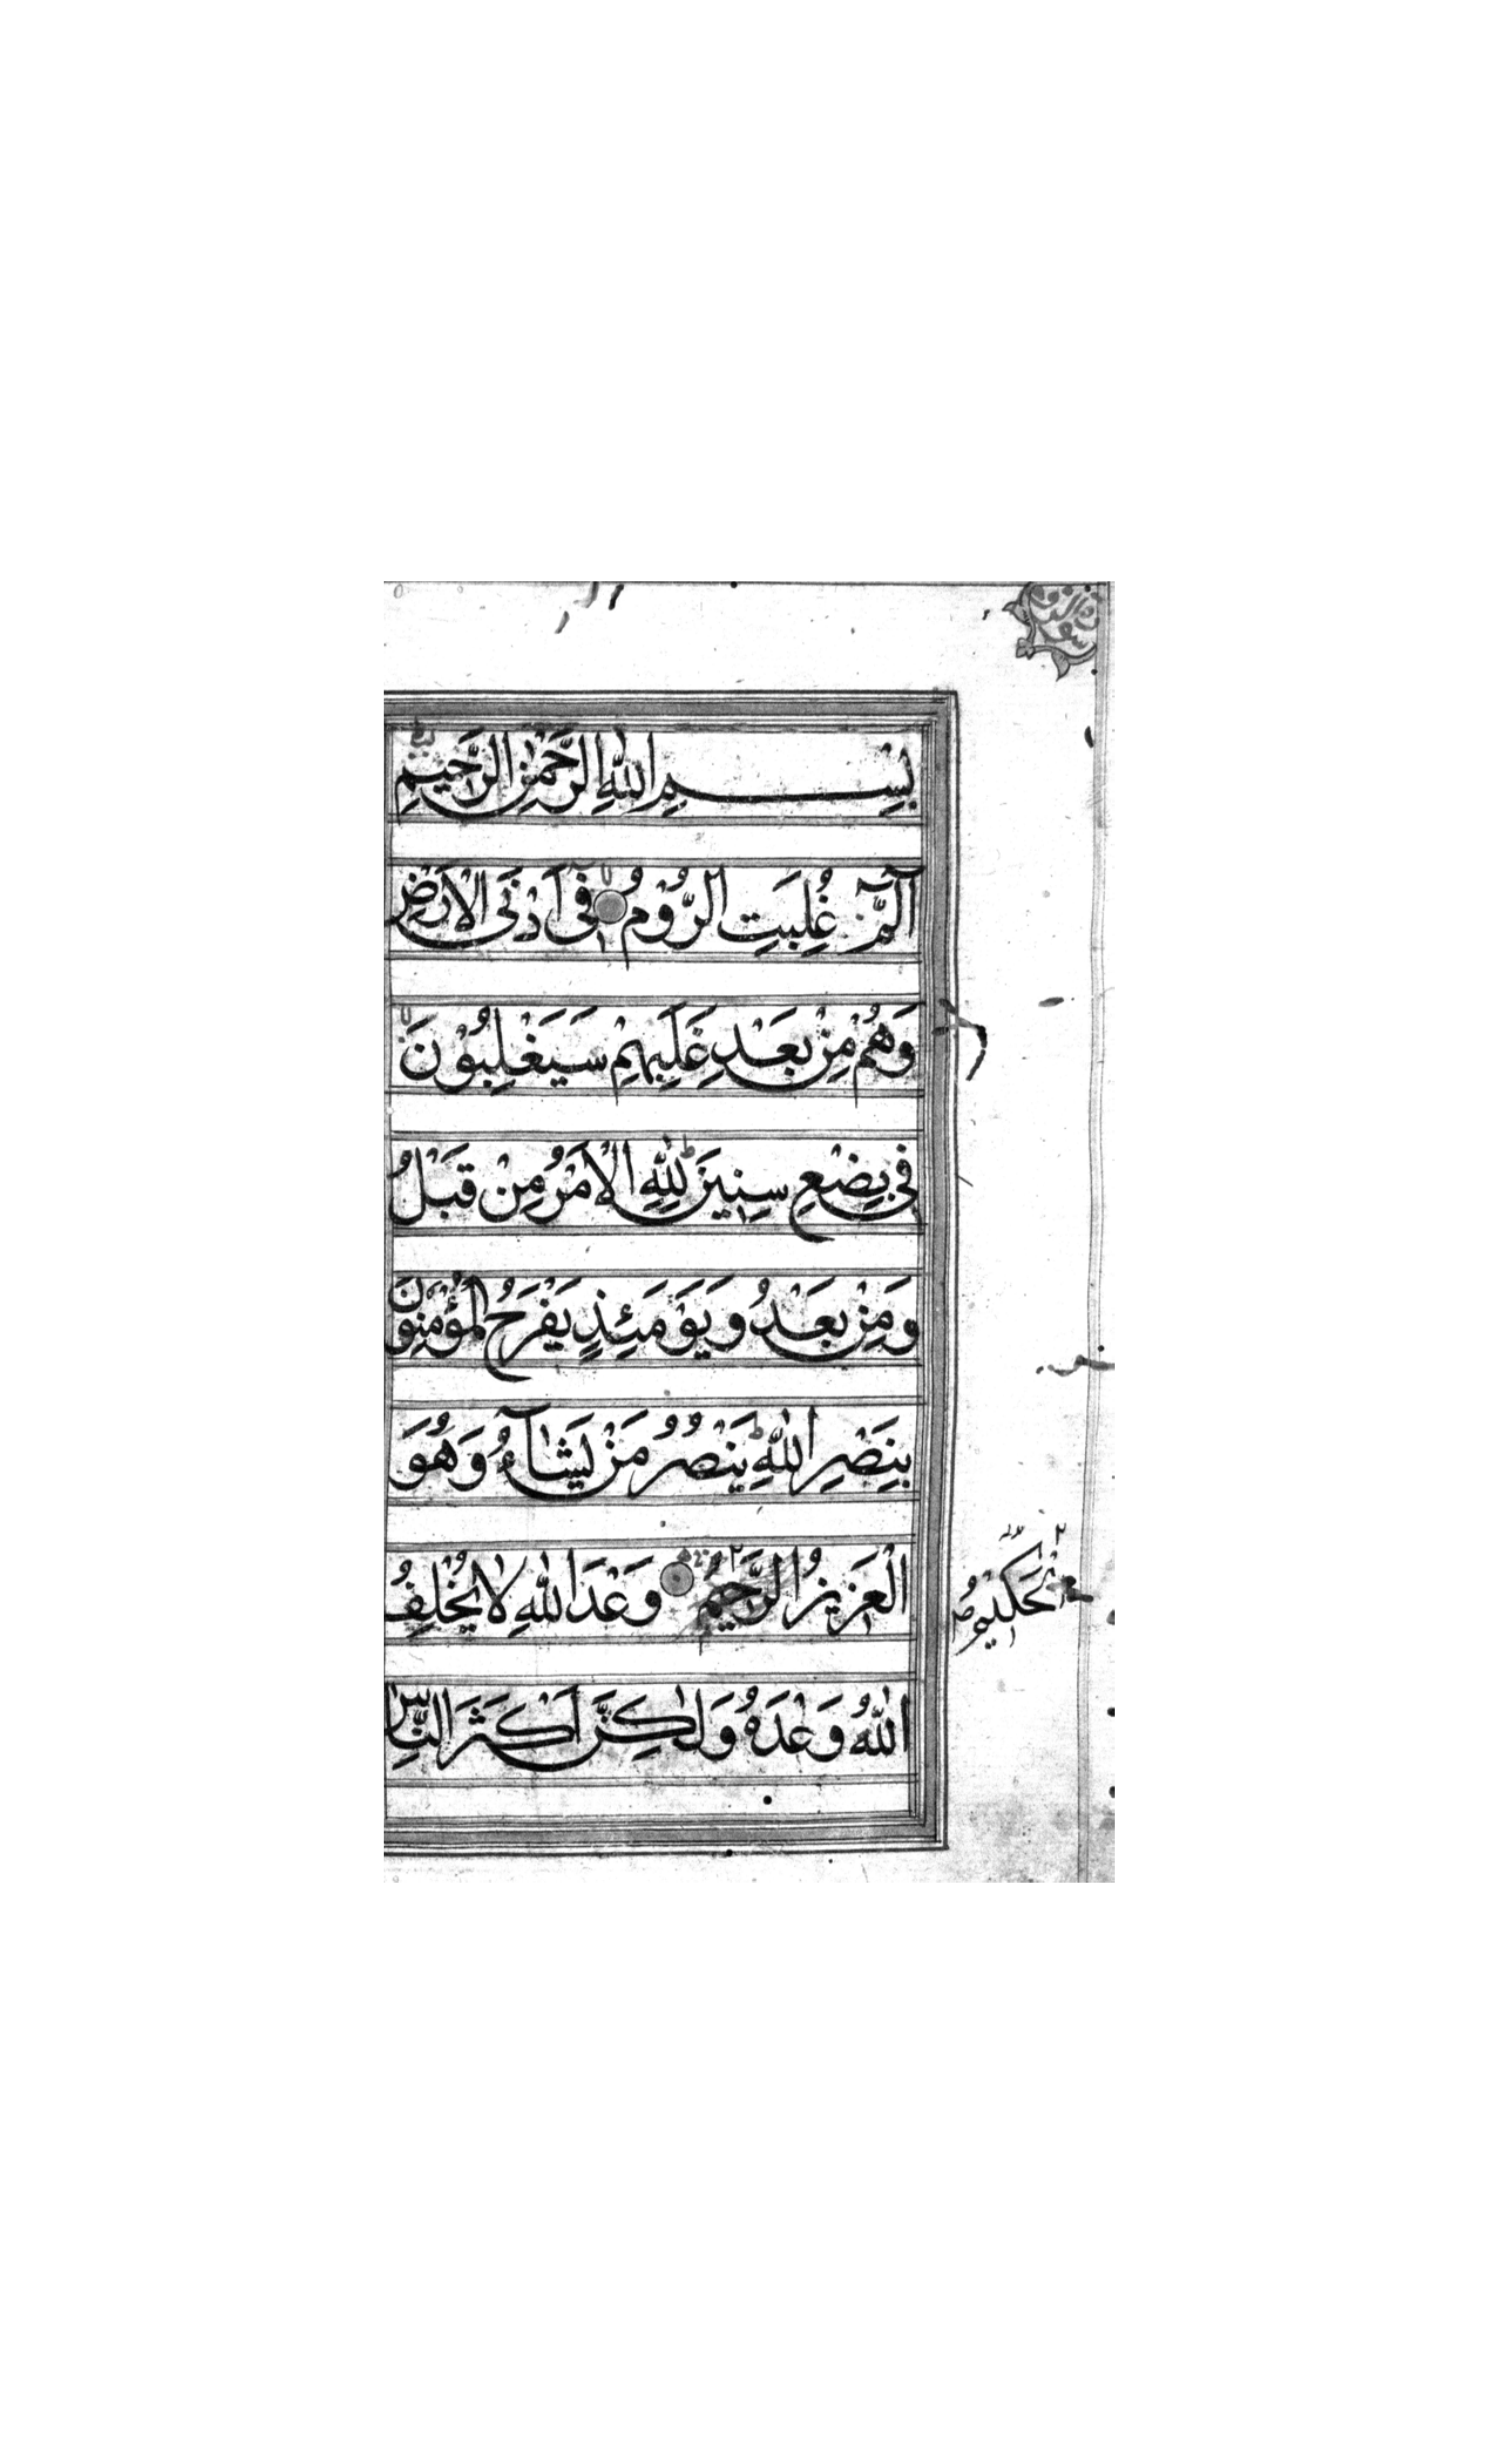 بِسْمِ اللهِ الرَّحْمٰنِ الرَّحِيْمِ
الٓمّٓ غُلِبَتِ الرُّوْمُ فِىْٓ اَدْنَى الْاَرْضِ
وَهُمْ مِنْ بَعْدِ غَلَبِهِمْ سَيَغْلِبُوْنَ
فِىْ بِضْعِ سِنِيْنَ لِلّٰهِ الْاَمْرُ مِنْ قَبْلُ
وَمِنْ بَعْدُ وَيَوْمَئِذٍ يَفْرَحُ الْمُؤْمِنُوْنَ
بِنَصْرِ اللّٰهِ يَنْصُرُ مَنْ يَشَآءُ وَهُوَ
الْعَزِيْزُ الرَّحِيْمُ وَعْدَ اللّٰهِ لَا يُخْلِفُ
الْحَكِيْمُ
اللّٰهُ وَعْدَهُ وَلٰكِنَّ اَكْثَرَ النَّاسِ